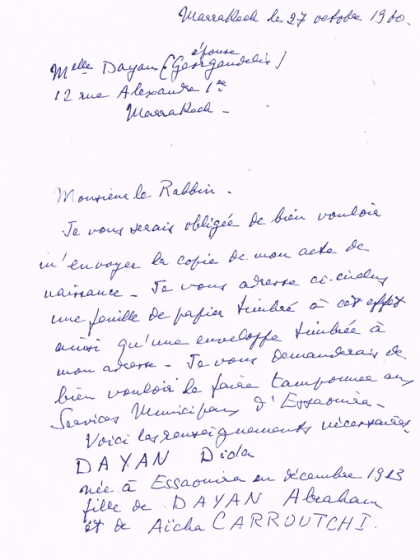 Marrakech le 27 octobre 1960.
épouse
Melle Dayan (Georgandelis)
12 rue Alexandre 1er
Marrakech -
Monsieur le Rabbin -
Je vous serais obligée de bien vouloir
m'envoyer la copie de mon acte de
naissance - Je vous adresse ci-inclus
une feuille de papier timbré à cet effet
ainsi qu'une enveloppe timbrée à
mon adresse - Je vous demanderais de
bien vouloir le faire tamponner aux
Services Municipaux d'Essaouira -
Voici les renseignements nécessaires
DAYAN Dida
née à Essaouira en décembre 1923
fille de DAYAN Abraham
et de Aïcha CARROUTCHI.